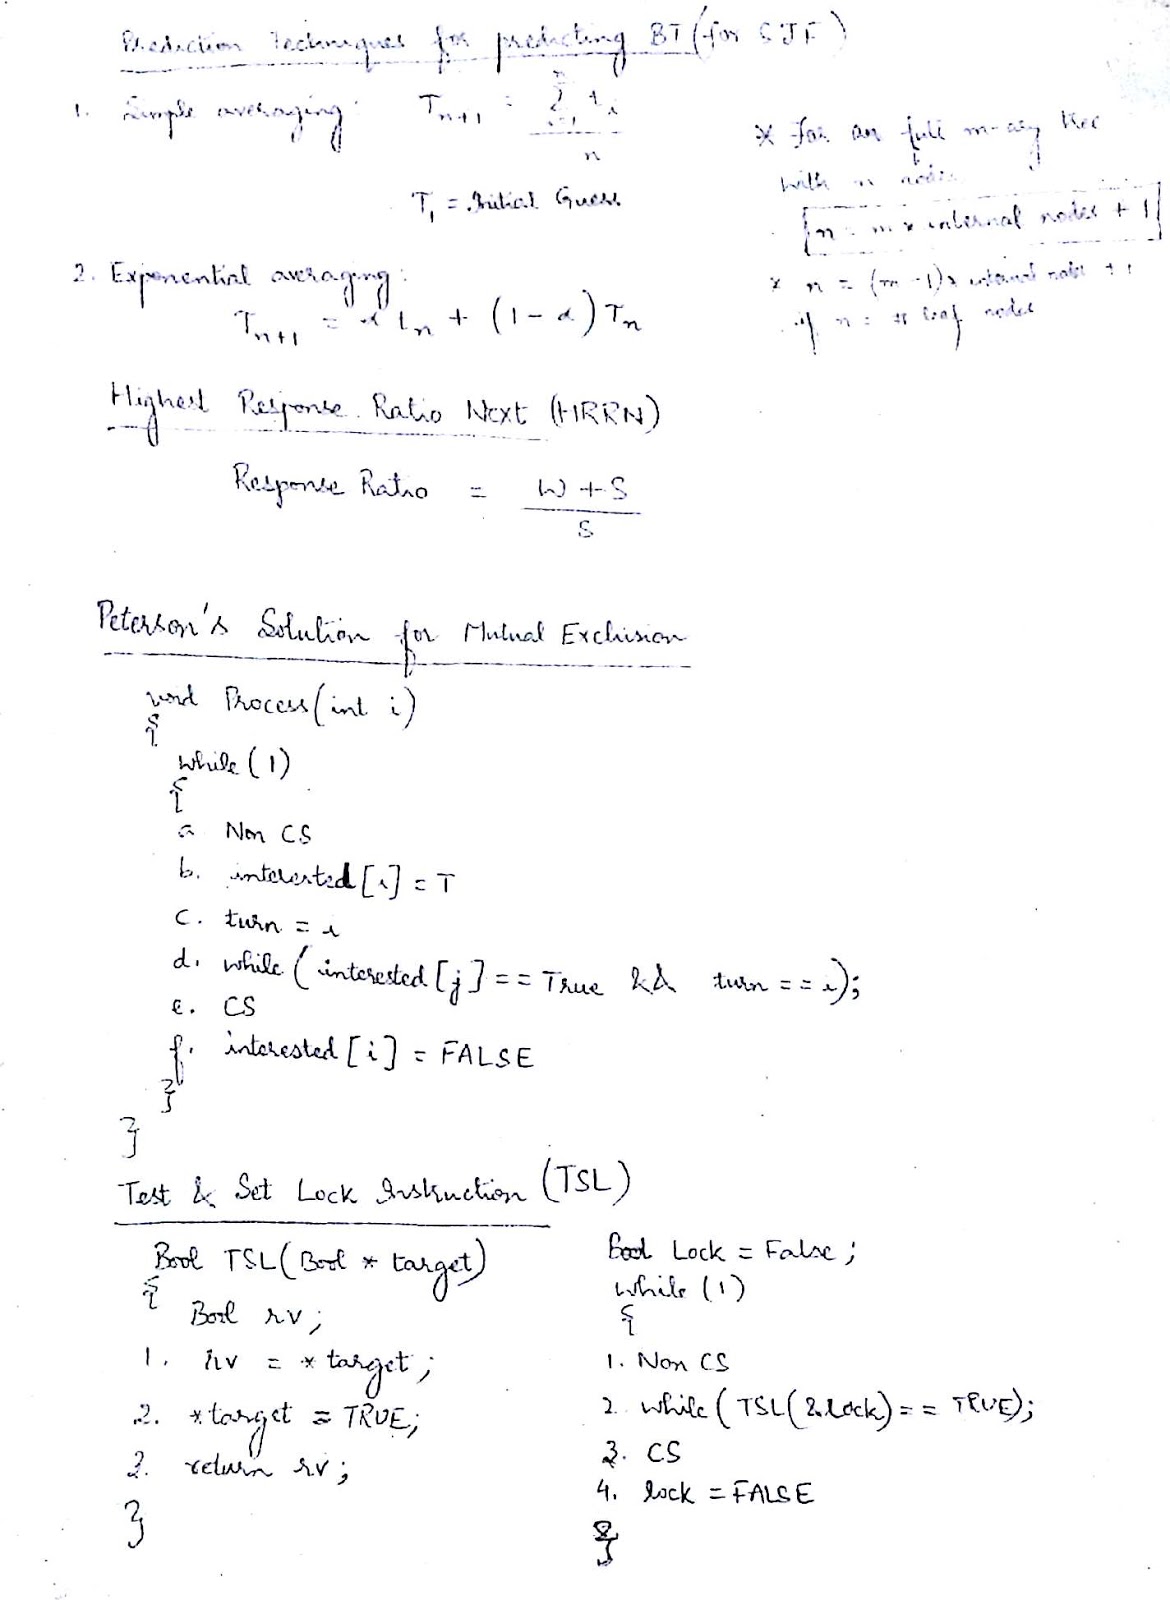 Prediction Techniques for predicting BT (for SJF)
1. Simple averaging: T_{n+1} = \frac{\sum_{i=1}^{n} t_i}{n}
T_1 = Initial Guess
2. Exponential averaging:
T_{n+1} = α t_n + (1 - α) T_n
* For an full m-ary tree
with n nodes
n = m x internal nodes + 1
* n = (m - 1) x internal nodes + 1
if n = # leaf nodes
Highest Response Ratio Next (HRRN)
Response Ratio = \frac{W + S}{S}
Peterson's Solution for Mutual Exclusion
void Process(int i)
{
while(1)
{
a Non CS
b. interested[i] = T
c. turn = i
d. while (interested[j] == True && turn == i);
e. CS
f. interested[i] = FALSE
}
}
Test & Set Lock Instruction (TSL)
Bool TSL(Bool * target)
{
Bool rv;
1. rv = * target;
2. *target = TRUE;
3. return rv;
}
Bool Lock = False;
while (1)
{
1. Non CS
2. while (TSL(&lock) == TRUE);
3. CS
4. lock = FALSE
}